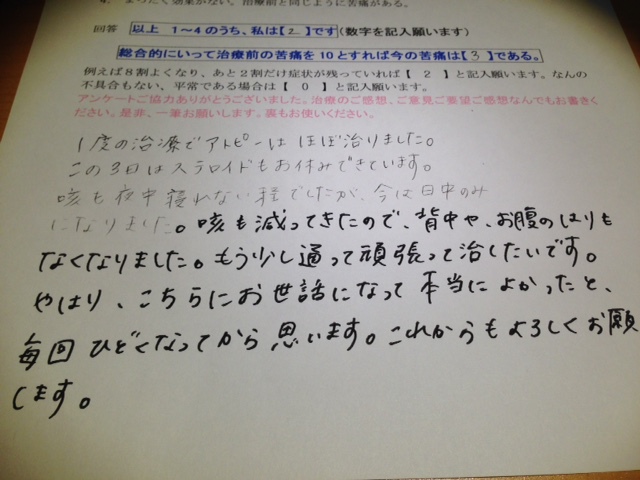 4. まったく効果がない。治療前と同じように苦痛がある。
回答 以上 1～4のうち、私は【 2 】です(数字を記入願います)
総合的にいって治療前の苦痛を10とすれば今の苦痛は【 3 】である。
例えば8割よくなり、あと2割だけ症状が残っていれば【 2 】と記入願います。なんの
不具合もない、平常である場合は【 0 】と記入願います。
アンケートご協力ありがとうございました。治療のご感想、ご意見ご要望ご感想なんでもお書きく
ださい。是非、一筆お願いします。裏もお使いください。
1度の治療でアトピーは ほぼ治りました。
この3日はステロイドもお休みできています。
咳も夜中寝れない程でしたが、今は日中のみ
になりました。咳も減ってきたので、背中や、お腹のはりも
なくなりました。もう少し通って頑張って治したいです。
やはり、こちらにお世話になって本当によかったと、
毎回ひどくなってから思います。これからもよろしくお願
します。